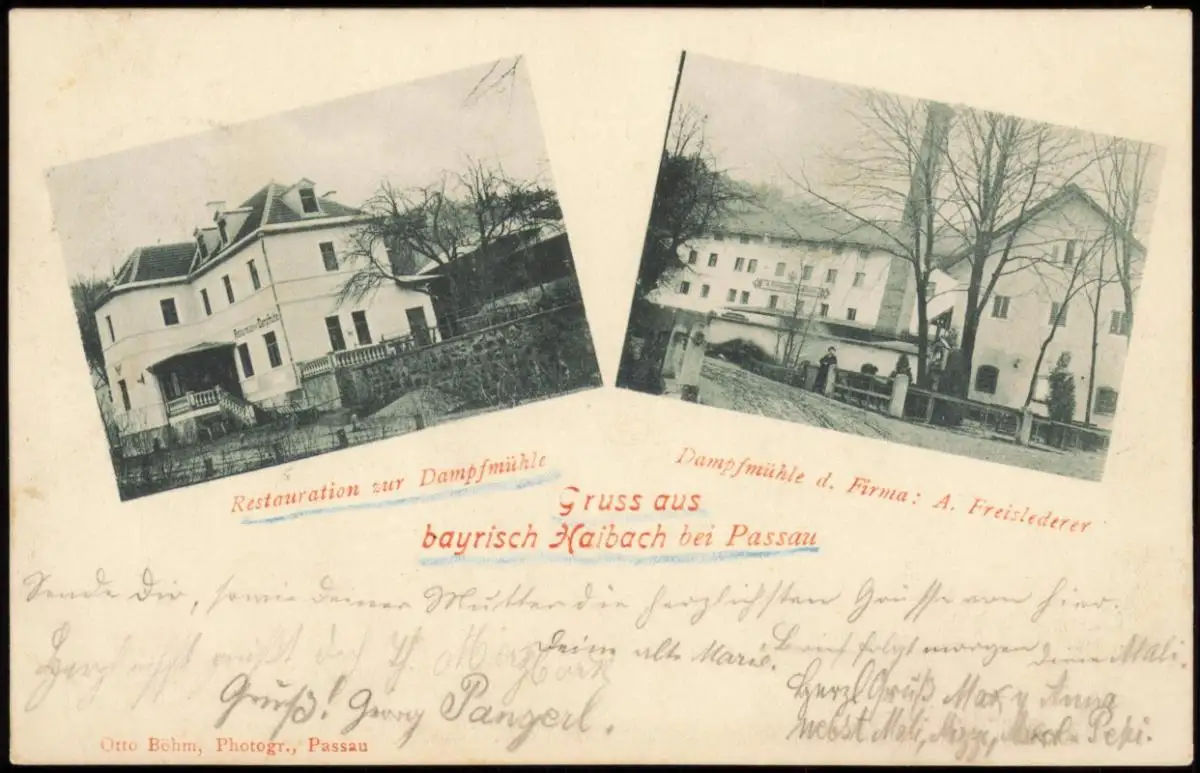 Restauration Dampfmühle
Restauration zur Dampfmühle
Dampfmühle d. Firma: A. Freislederer
Gruss aus
bayrisch Haibach bei Passau
Sende Dir, sowie deiner Mutter die herzlichsten Grüsse von hier.
Deine alte Marie.
Brief folgt morgen deine Mali.
Gruß! Georg Pangerl.
Herzl. Gruß Max u Anna
nebst Mali, Pepi.
Otto Böhm, Photogr., Passau